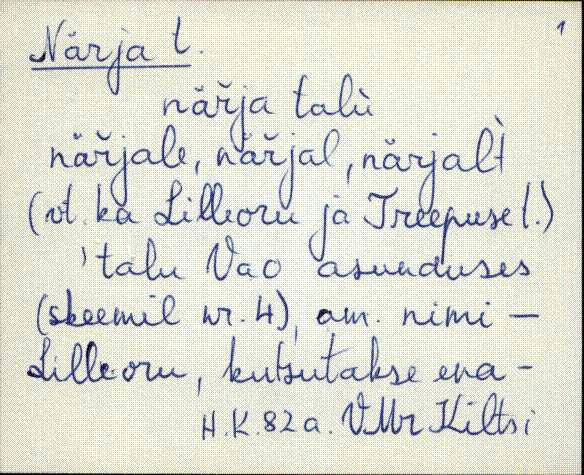 1
Närja t.
näřja talù
näřjale, näřjal, närjalt̀
(vt. ka Lilleoru ja Treepuse t.)
'talu Vao asunduses
(skeemil nr. 4), am. nimi -
Lilleoru, kutsutakse ena -
H.K. 82 a. VMr Kiltsi